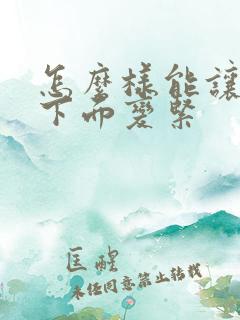 怎麼樣能讓
下面變緊
匡醒
未经同意禁止转载